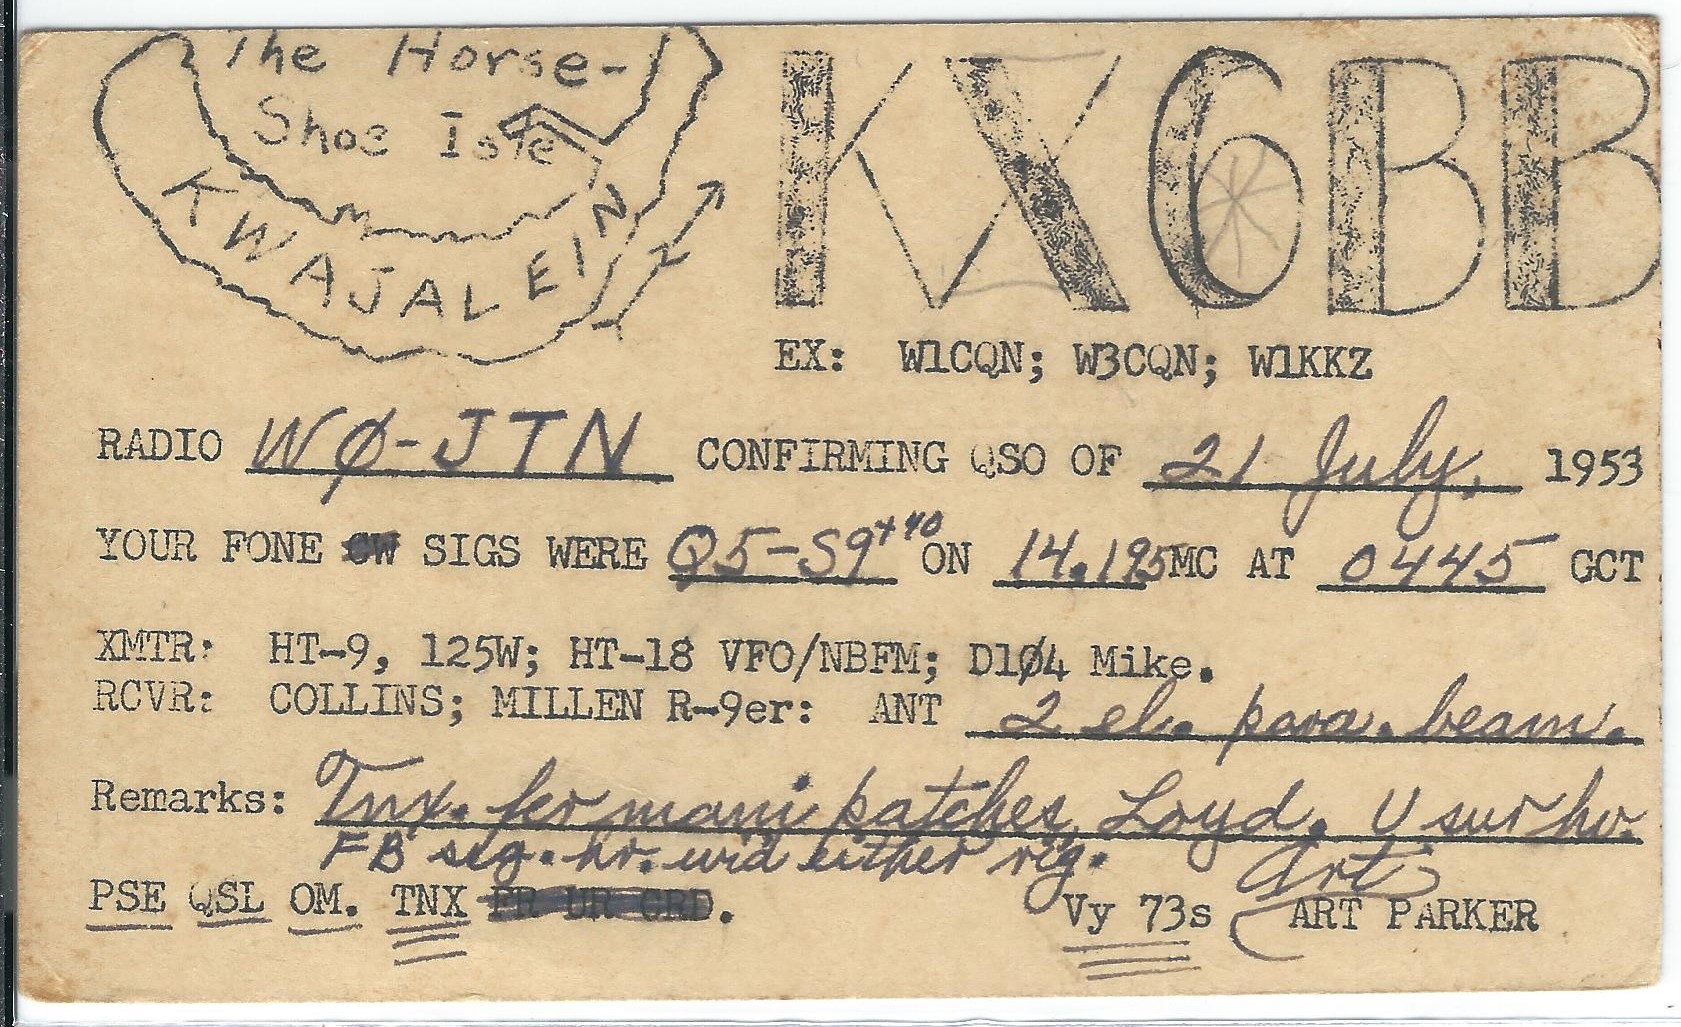 The Horse-
Shoe Isle
KWAJALEIN
N
KX6BB
EX: W1CQN; W3CQN; W1KKZ
RADIO WØ-JTN CONFIRMING QSO OF 21 July, 1953
YOUR FONE CW SIGS WERE Q5-S9+40 ON 14.195 MC AT 0445 GCT
XMTR: HT-9, 125W; HT-18 VFO/NBFM; D1Ø4 Mike.
RCVR: COLLINS; MILLEN R-9er: ANT 2 el. para. beam.
Remarks: Tnx. fer mani patches, Loyd. U sur hv.
FB sig. hr. wid either rig.
Art
PSE QSL OM. TNX FR UR CRD. Vy 73s ART PARKER